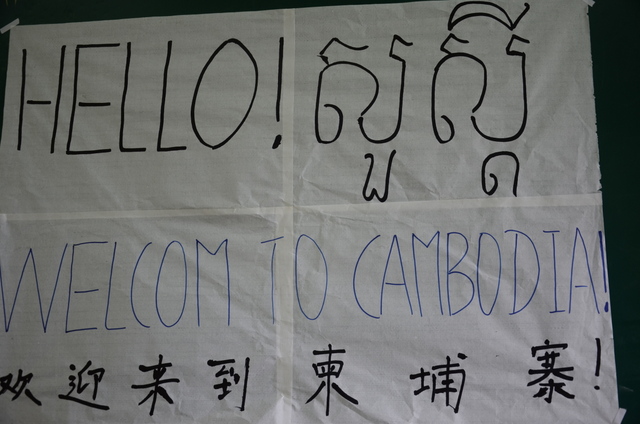 HELLO! សួស្តី
WELCOM TO CAMBODIA!
欢迎来到柬埔寨!